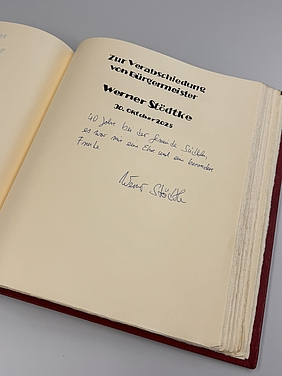 Zur Verabschiedung
von Bürgermeister
Werner Stödtke
30. Oktober 2025
40 Jahre bei der Gemeinde
es war mir eine Ehre und eine besondere
Freude
Werner Stödtke